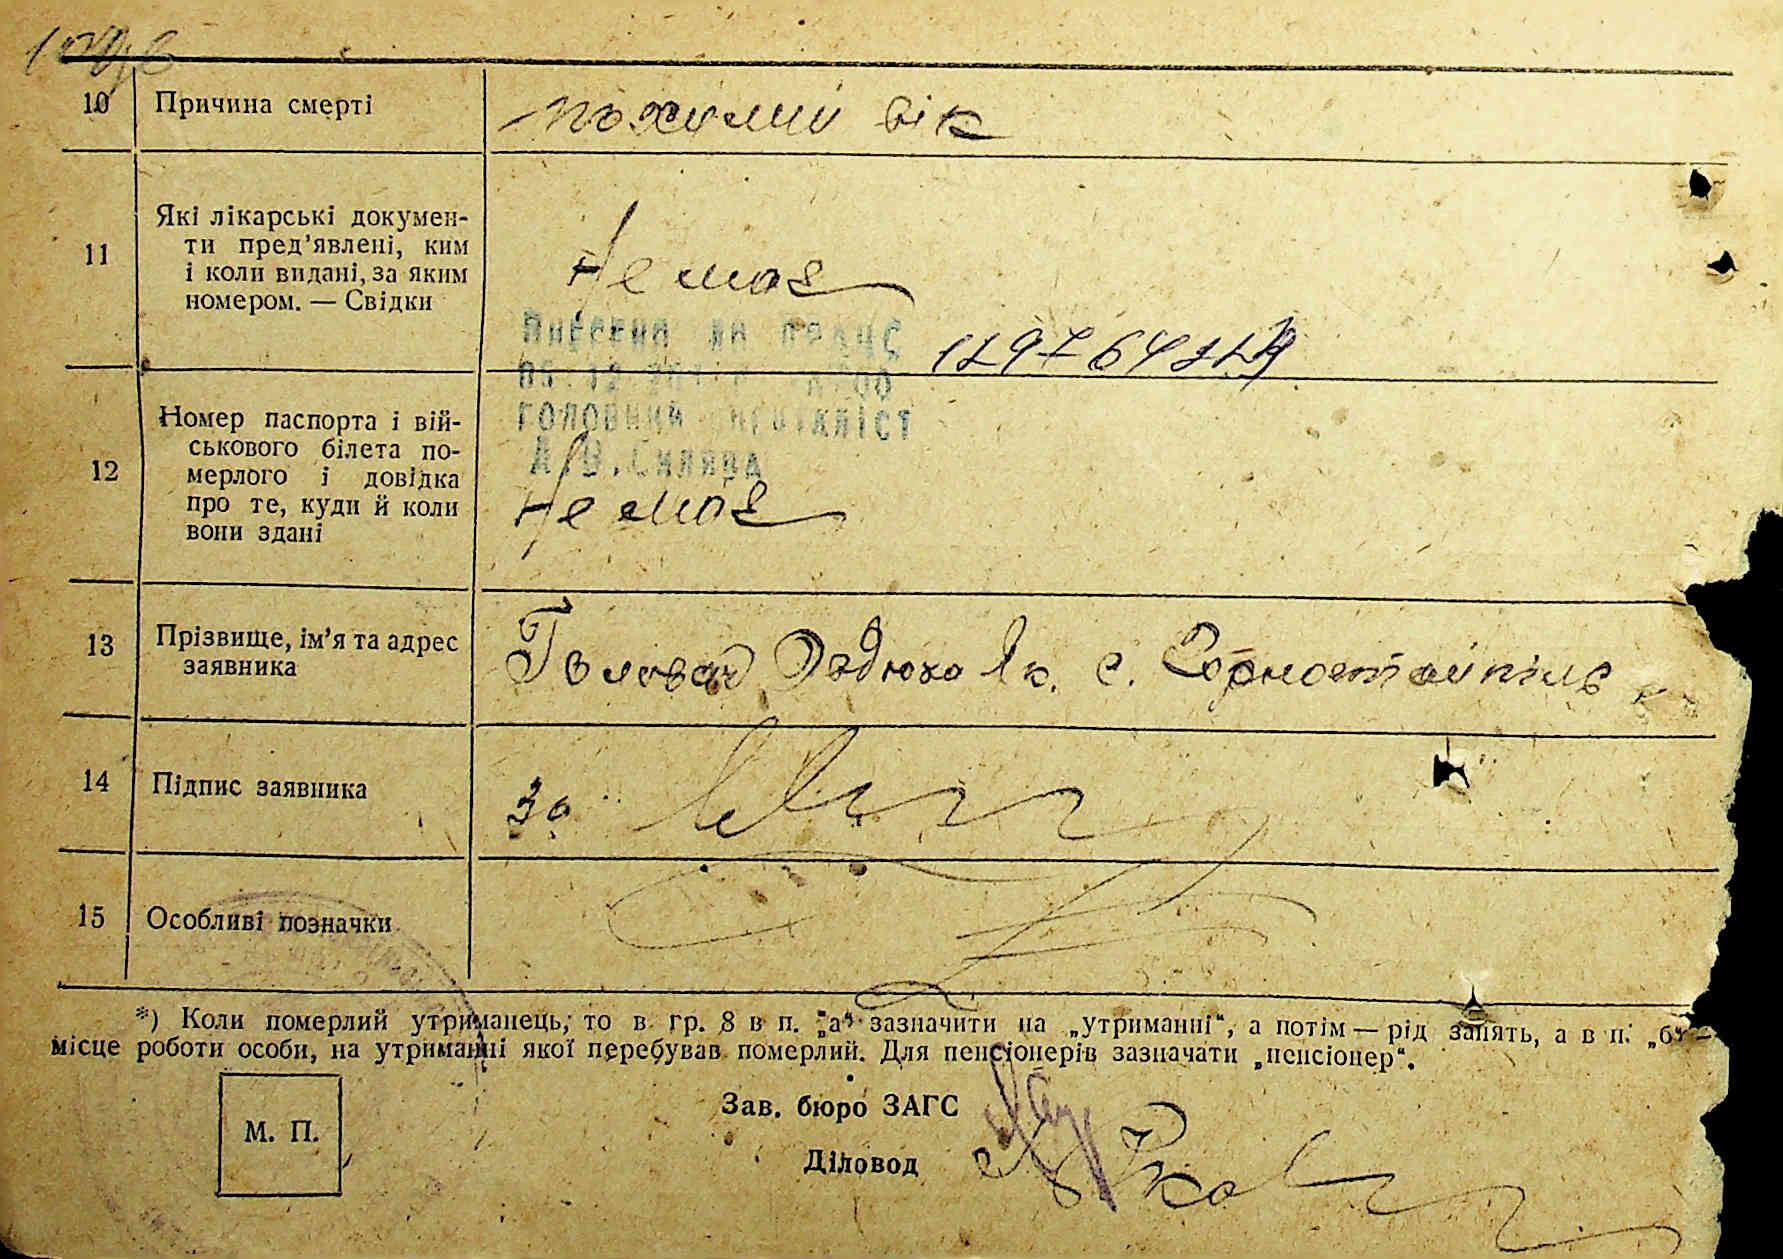 10 Причина смерті похилий вік
11 Які лікарські докумен-
ти пред’явлені, ким
і коли видані, за яким
номером. — Свідки
Немає
Внесено до
головний спеціаліст
12 Номер паспорта і вій-
ськового білета по-
мерлого і довідка
про те, куди й коли
вони здані
Немає
13 Прізвище, ім’я та адрес
заявника
Головач Явдюха Як. с. Горностайпіль
14 Підпис заявника За
15 Особливі позначки
*) Коли померлий утриманець, то в гр. 8 в п. „а“ зазначити на „утриманні“, а потім — рід занять, а в п. „б“ —
місце роботи особи, на утриманні якої перебував померлий. Для пенсіонерів зазначати „пенсіонер“.
М. П.
Зав. бюро ЗАГС
Діловод